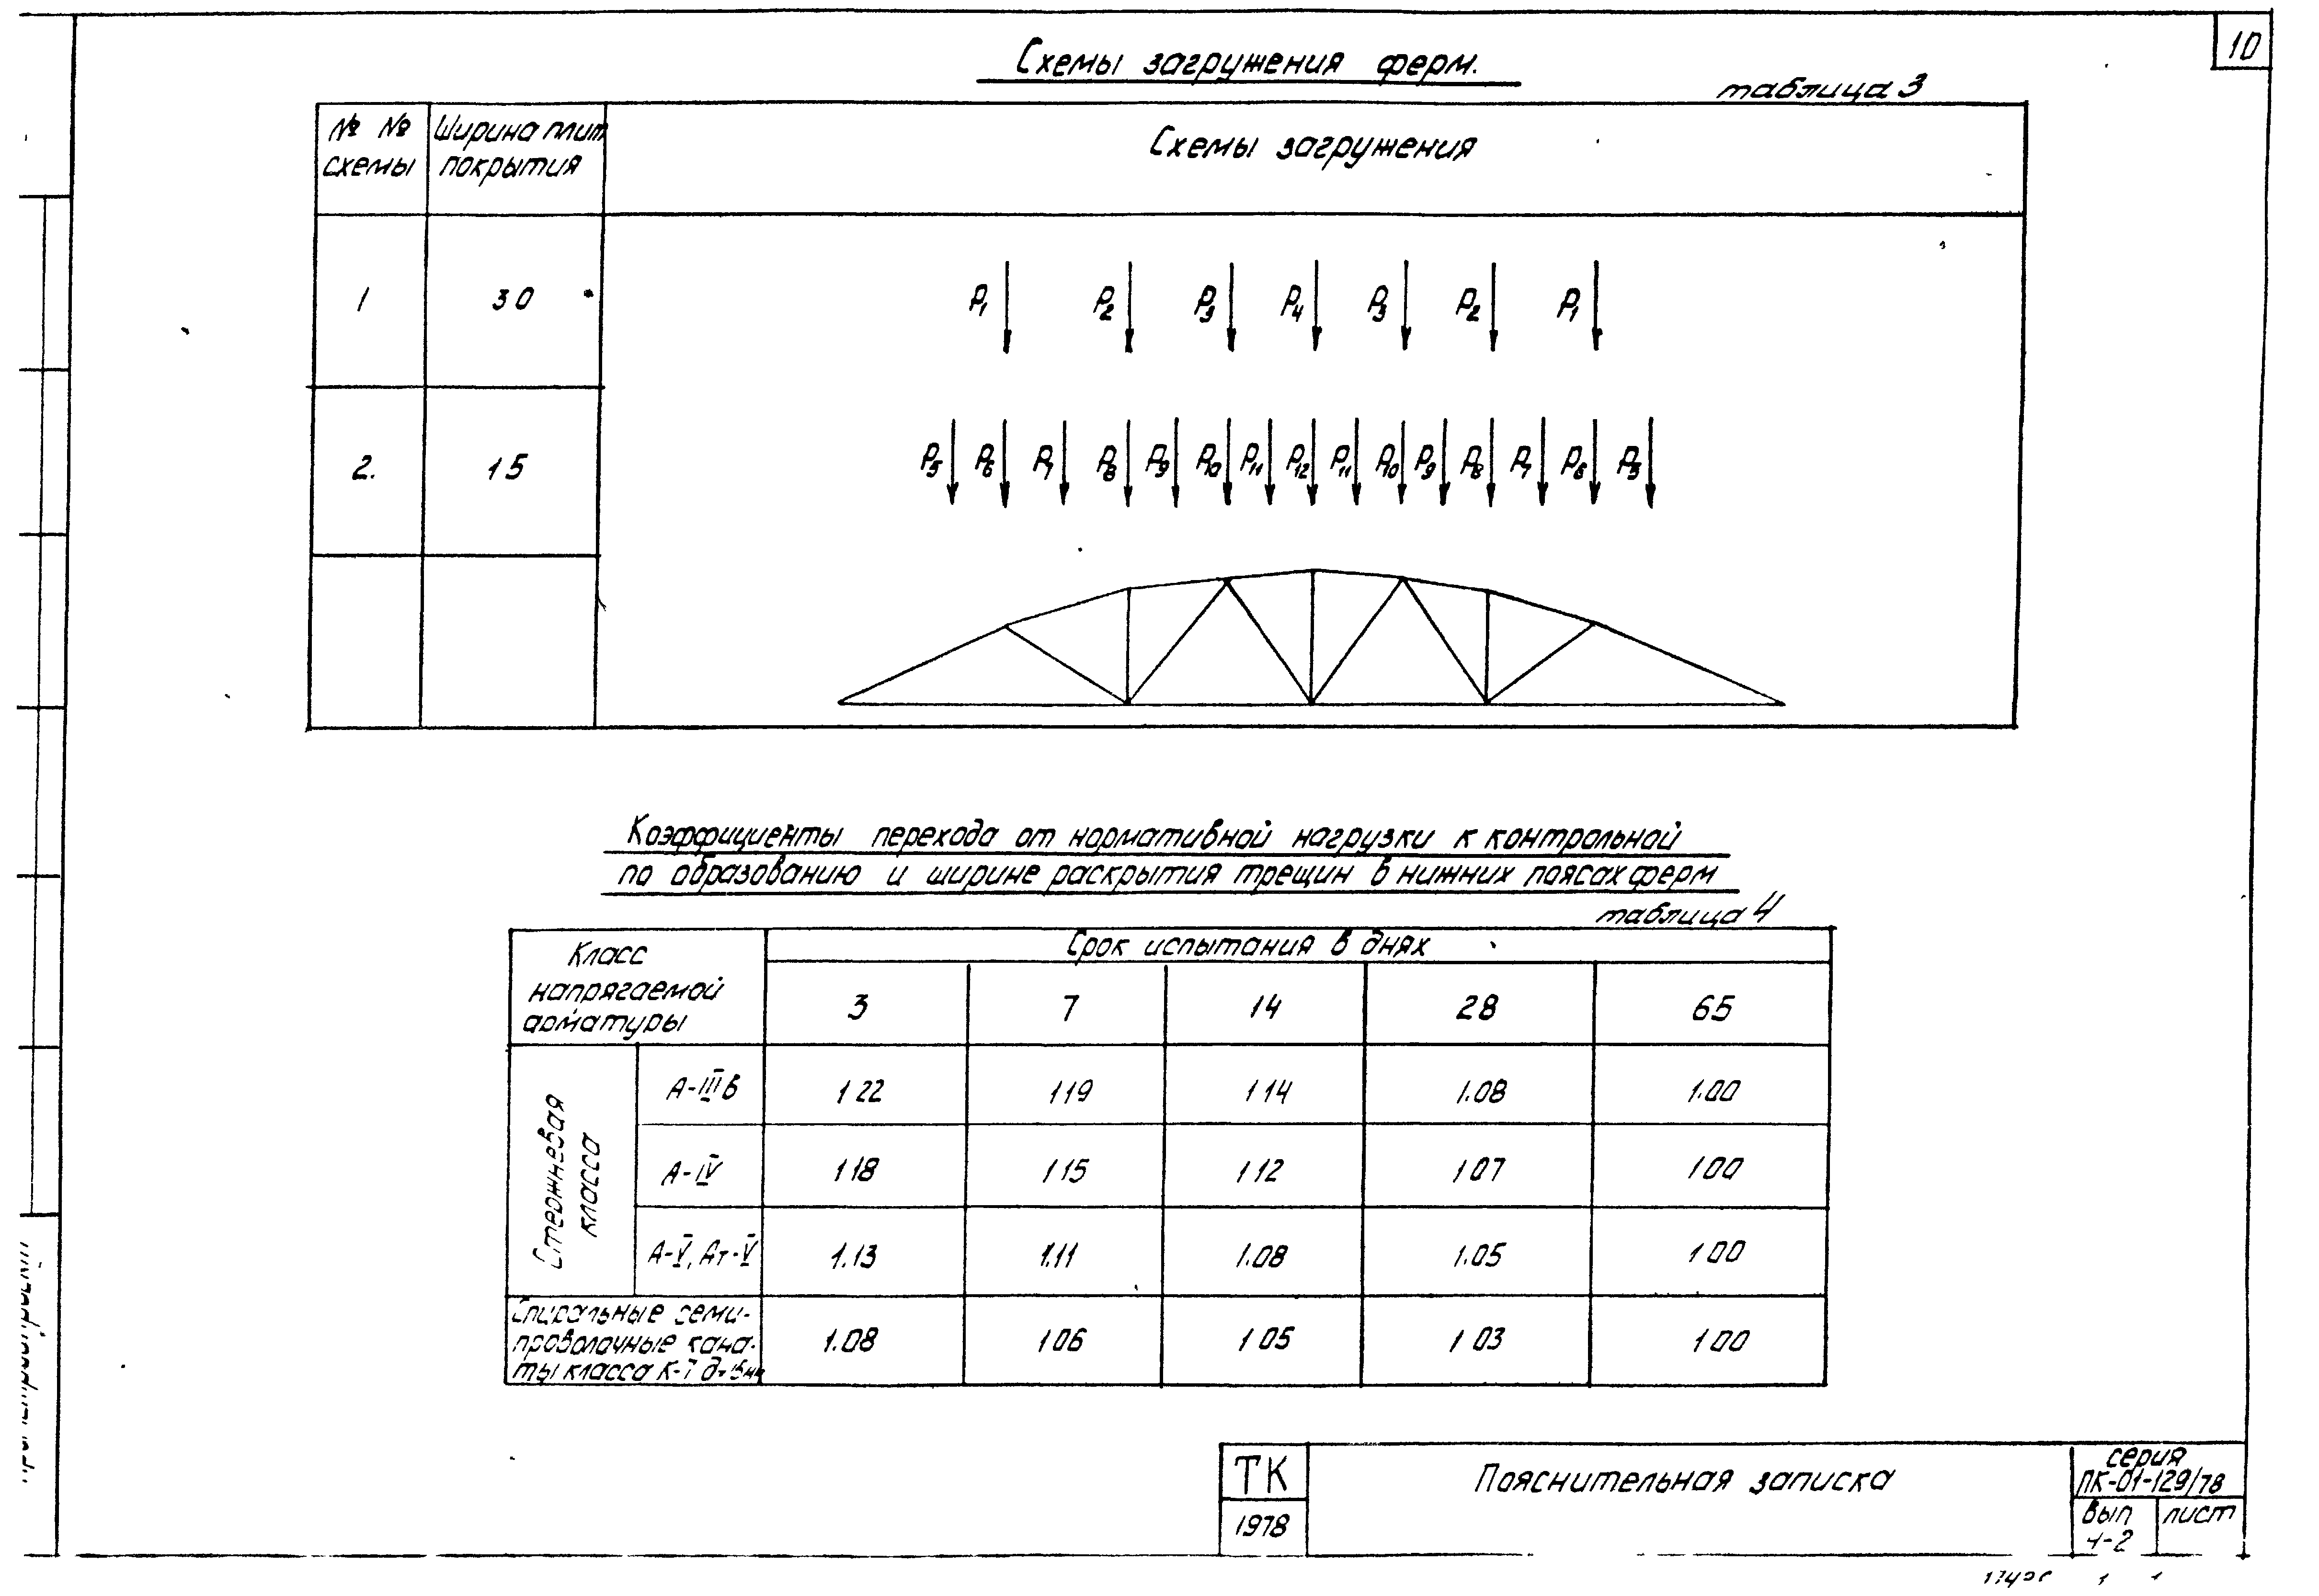 10
Схемы загружения ферм.
таблица 3
№ №
схемы
Ширина плит
покрытия
Схемы загружения
1
30
P1 P2 P3 P4 P3 P2 P1
2.
15
P5 P6 P7 P8 P9 P10 P11 P12 P11 P10 P9 P8 P7 P6 P5
Коэффициенты перехода от нормативной нагрузки к контрольной
по образованию и ширине раскрытия трещин в нижних поясах ферм
таблица 4
Класс
напрягаемой
арматуры
Срок испытания в днях
3 7 14 28 65
Стержневая
класса
А-IIIв 1 22 1 19 1 14 1.08 1.00
А-IV 1 18 1 15 1 12 1 07 1 00
А-V, Ат-V 1.13 1.11 1.08 1.05 1 00
Спиральные семи-
проволочные кана-
ты класса К-7
1.08 1 06 1 05 1 03 1 00
ТК
1978
Пояснительная записка
серия
ПК-01-129/78
вып
4-2
лист